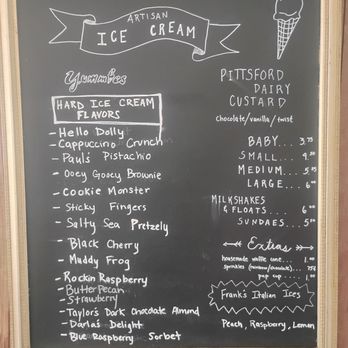 ARTISAN
ICE CREAM
Yummies
HARD ICE CREAM
FLAVORS
- Hello Dolly
- Cappuccino Crunch
- Paul's Pistachio
- Ooey Gooey Brownie
- Cookie Monster
- Sticky Fingers
- Salty Sea Pretzely
- Black Cherry
- Muddy Frog
- Rockin Raspberry
- Butter Pecan
- Strawberry
- Taylor's Dark Chocolate Almond
- Darla's Delight
- Blue Raspberry Sorbet
PITTSFORD
DAIRY
CUSTARD
chocolate/vanilla/twist
BABY... 3.75
SMALL...
MEDIUM...
LARGE...
MILKSHAKES
& FLOATS...
SUNDAES...
Extras
housemade waffle cone...
sprinkles (rainbow/chocolate)... 75¢
pup cup
Frank's Italian Ices
Peach, Raspberry, Lemon